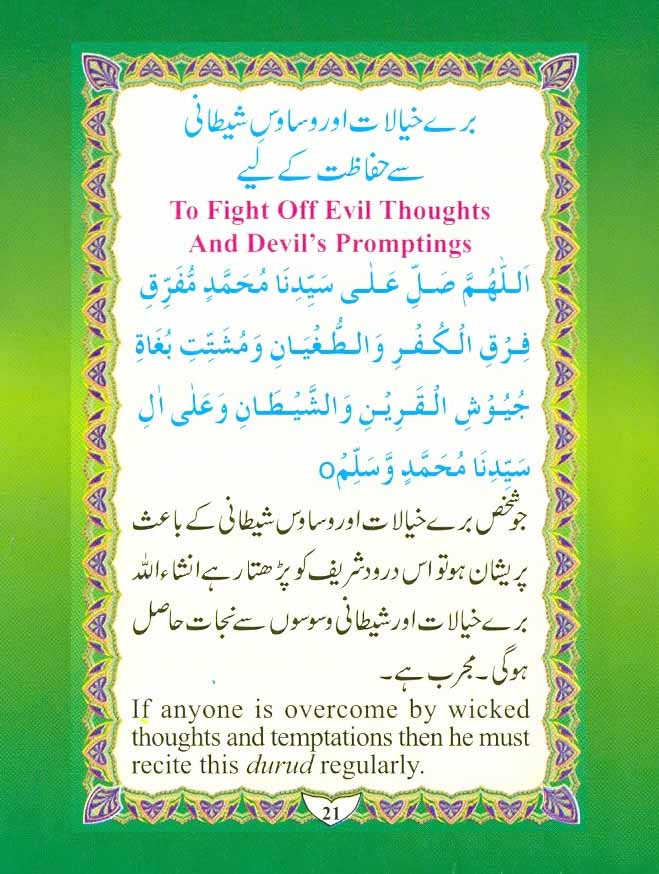 برے خیالات اور وساوسِ شیطانی
سے حفاظت کے لیے
To Fight Off Evil Thoughts
And Devil's Promptings
اَللّٰهُمَّ صَلِّ عَلٰى سَيِّدِنَا مُحَمَّدٍ مُّفَرِّقِ
فِرَقِ الْكُفْرِ وَالطُّغْيَانِ وَمُشَتِّتِ بُغَاةِ
جُيُوْشِ الْقَرِيْنِ وَالشَّيْطَانِ وَعَلٰى اٰلِ
سَيِّدِنَا مُحَمَّدٍ وَّسَلِّمْo
جو شخص برے خیالات اور وساوس شیطانی کے باعث
پریشان ہو تو اس درود شریف کو پڑھتا رہے انشاءاللہ
برے خیالات اور شیطانی وسوسوں سے نجات حاصل
ہوگی۔ مجرب ہے۔
If anyone is overcome by wicked
thoughts and temptations then he must
recite this durud regularly.
21